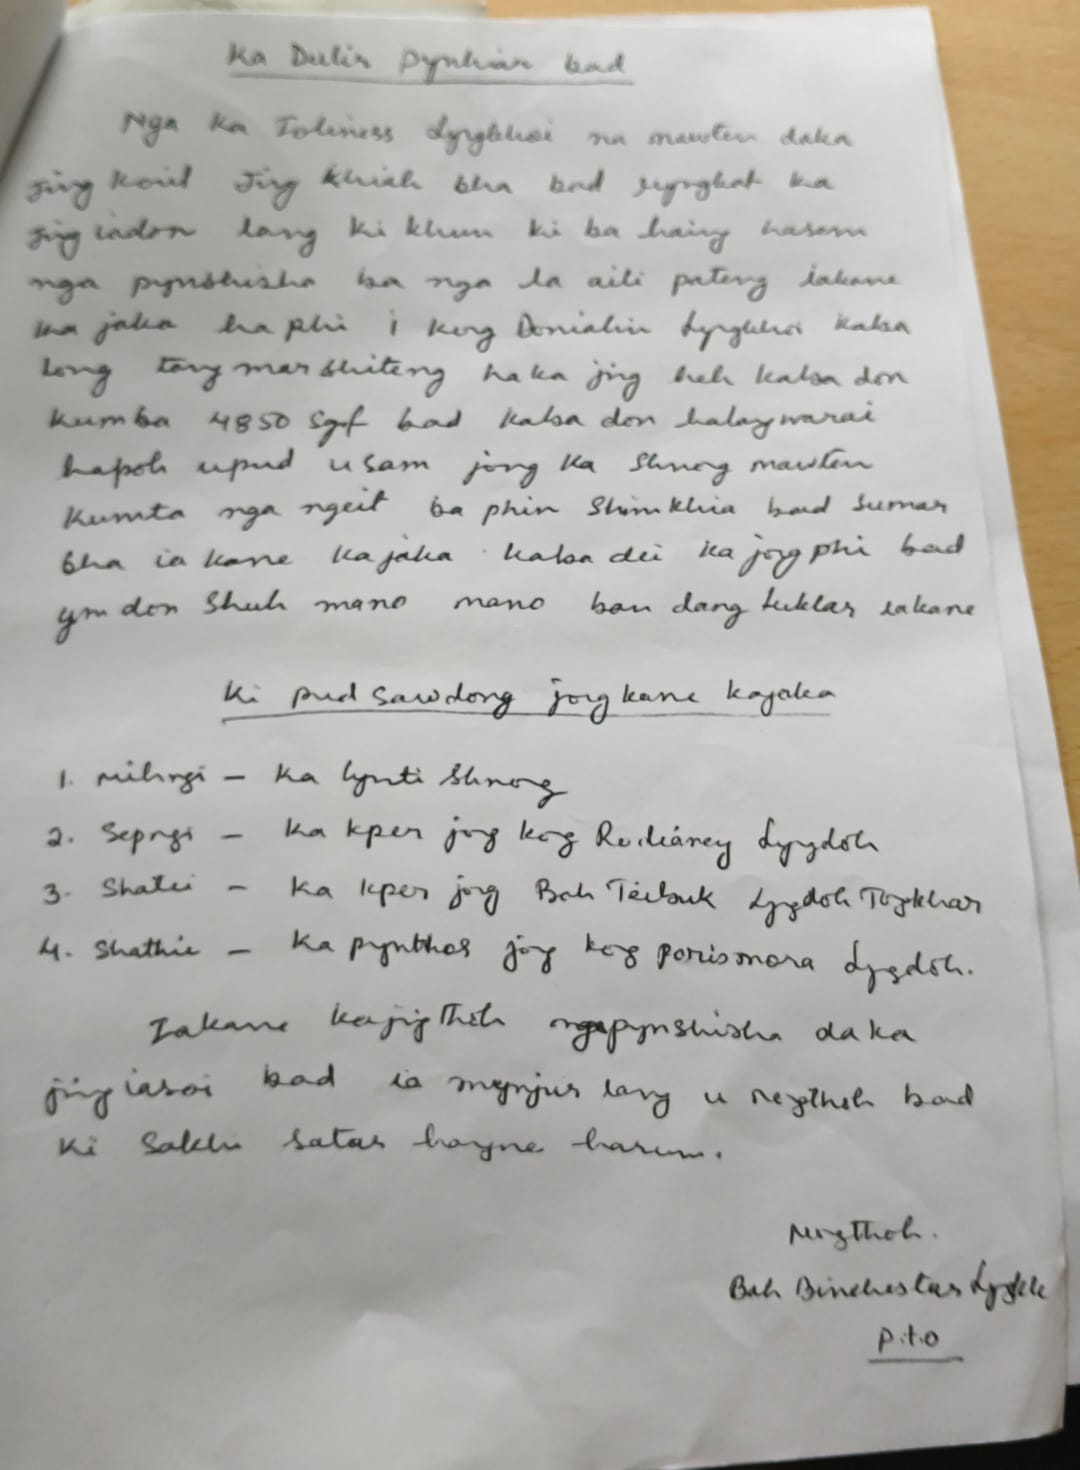 Ka Dulir Pynkiar bad
Nga Ka Toliness Lyngkhoi na mawten daka
Jing Koit Jing Khiah bha bad ryngkat ka
Jing iadon lang ki khun ki ba haing hasem
nga pynshisha ba nga la aili pateng iakane
ka jaka ha phi i Kong Donialin Lyngkhoi kaba
long tang marshiteng haka jing heh kaba don
kumba 4850 Sqf bad kaba don halaywarai
hapoh upud u sam jong Ka Shnong mawten
Kumta nga ngeit ba phin Shimkhia bad Sumar
bha ia kane ka jaka kaba dei ka jong phi bad
ym don Shuh mano mano ban dang tuklar iakane
Ki pud Sawdong jong kane kajaka
1. Mihngi – Ka lynti Shnong
2. Sepngi – Ka kper jong kong Lyngdoh
3. Shatei – Ka kper jong Bah Teibuk Lyngdoh
4. Shathie – Ka pynthor jong kong Porismora Lyngdoh.
Iakane kajingthoh ngapynshisha da ka
jingiasoi bad ia mynjur lang u nongthoh bad
Ki Sakhi Satar hayne harum.
Nongthoh.
Bah Binchestar
P.t.o